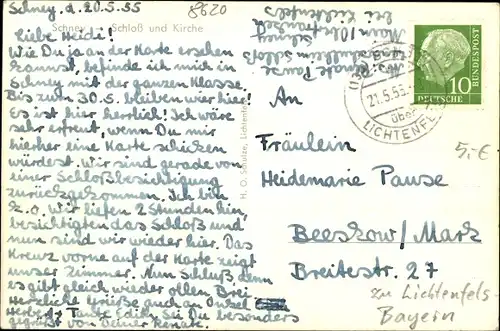 Schney, d. 20.5.55
8620
Schney Schloß und Kirche
Liebe Heidi!
Wie Du ja an der Karte ersehen
kannst, befinde ich mich in
Schney mit der ganzen Klasse.
Bis zum 30.5. bleiben wir hier!
Es ist hier herrlich! Ich wäre
sehr erfreut, wenn Du mir
hierher eine Karte schicken
würdest. Wir sind gerade von
einer Schloßbesichtigung
zurückgekommen. Ich bin
k.o. Wir liefen 2 Stunden hin,
besichtigten das Schloß und
nun sind wir wieder hier. Das
Kreuz vorne auf der Karte zeigt
unser Zimmer. Nun Schluß, denn
es gibt gleich wieder ollen Brei.
Herzliche Grüße auch an Onkel
Herbert, Tante Edith. Sei Du besonders
gegrüßt von Deiner Renate.
H. O. Schulze, Lichtenfels
Renate Pause
Schney
bei Lichtenfels
21.5.55
über
LICHTENFELS
DEUTSCHE BUNDESPOST
10
An
Fräulein
Heidemarie Pause
Beeskow/Mark
Breitestr. 27
5,-€
zu Lichtenfels
Bayern